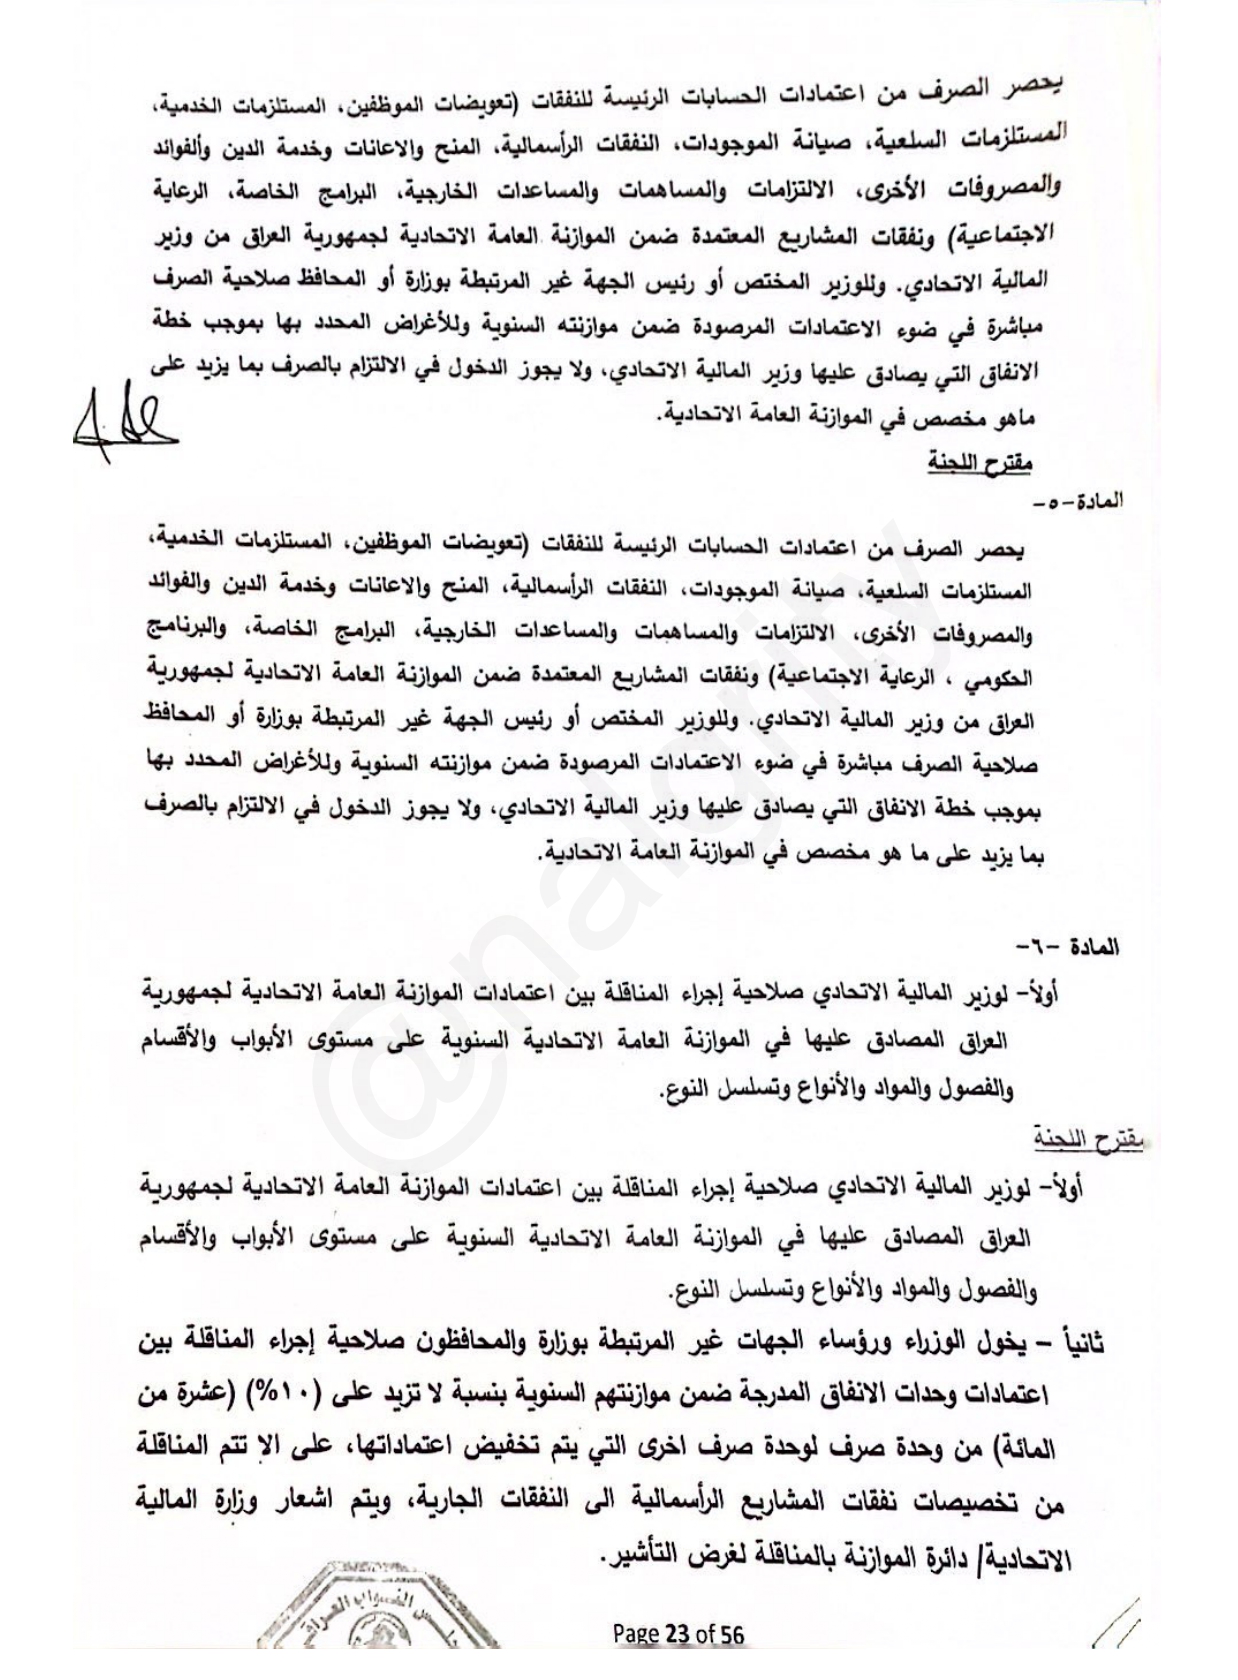 يحصر الصرف من اعتمادات الحسابات الرئيسة للنفقات (تعويضات الموظفين، المستلزمات الخدمية،
المستلزمات السلعية، صيانة الموجودات، النفقات الرأسمالية، المنح والاعانات وخدمة الدين والفوائد
والمصروفات الأخرى، الالتزامات والمساهمات والمساعدات الخارجية، البرامج الخاصة، الرعاية
الاجتماعية) ونفقات المشاريع المعتمدة ضمن الموازنة العامة الاتحادية لجمهورية العراق من وزير
المالية الاتحادي. وللوزير المختص أو رئيس الجهة غير المرتبطة بوزارة أو المحافظ صلاحية الصرف
مباشرة في ضوء الاعتمادات المرصودة ضمن موازنته السنوية وللأغراض المحدد بها بموجب خطة
الانفاق التي يصادق عليها وزير المالية الاتحادي، ولا يجوز الدخول في الالتزام بالصرف بما يزيد على
ماهو مخصص في الموازنة العامة الاتحادية.
مقترح اللجنة
المادة-٥-
يحصر الصرف من اعتمادات الحسابات الرئيسة للنفقات (تعويضات الموظفين، المستلزمات الخدمية،
المستلزمات السلعية، صيانة الموجودات، النفقات الرأسمالية، المنح والاعانات وخدمة الدين والفوائد
والمصروفات الأخرى، الالتزامات والمساهمات والمساعدات الخارجية، البرامج الخاصة، والبرنامج
الحكومي ، الرعاية الاجتماعية) ونفقات المشاريع المعتمدة ضمن الموازنة العامة الاتحادية لجمهورية
العراق من وزير المالية الاتحادي. وللوزير المختص أو رئيس الجهة غير المرتبطة بوزارة أو المحافظ
صلاحية الصرف مباشرة في ضوء الاعتمادات المرصودة ضمن موازنته السنوية وللأغراض المحدد بها
بموجب خطة الانفاق التي يصادق عليها وزير المالية الاتحادي، ولا يجوز الدخول في الالتزام بالصرف
بما يزيد على ما هو مخصص في الموازنة العامة الاتحادية.
المادة -٦-
أولاً- لوزير المالية الاتحادي صلاحية إجراء المناقلة بين اعتمادات الموازنة العامة الاتحادية لجمهورية
العراق المصادق عليها في الموازنة العامة الاتحادية السنوية على مستوى الأبواب والأقسام
والفصول والمواد والأنواع وتسلسل النوع.
مقترح اللجنة
أولاً- لوزير المالية الاتحادي صلاحية إجراء المناقلة بين اعتمادات الموازنة العامة الاتحادية لجمهورية
العراق المصادق عليها في الموازنة العامة الاتحادية السنوية على مستوى الأبواب والأقسام
والفصول والمواد والأنواع وتسلسل النوع.
ثانياً - يخول الوزراء ورؤساء الجهات غير المرتبطة بوزارة والمحافظون صلاحية إجراء المناقلة بين
اعتمادات وحدات الانفاق المدرجة ضمن موازنتهم السنوية بنسبة لا تزيد على (١٠%) (عشرة من
المائة) من وحدة صرف لوحدة صرف اخرى التي يتم تخفيض اعتماداتها، على الا تتم المناقلة
من تخصيصات نفقات المشاريع الرأسمالية الى النفقات الجارية، ويتم اشعار وزارة المالية
الاتحادية/ دائرة الموازنة بالمناقلة لغرض التأشير.
مجلس النواب العراقي
Page 23 of 56
@nalgrity